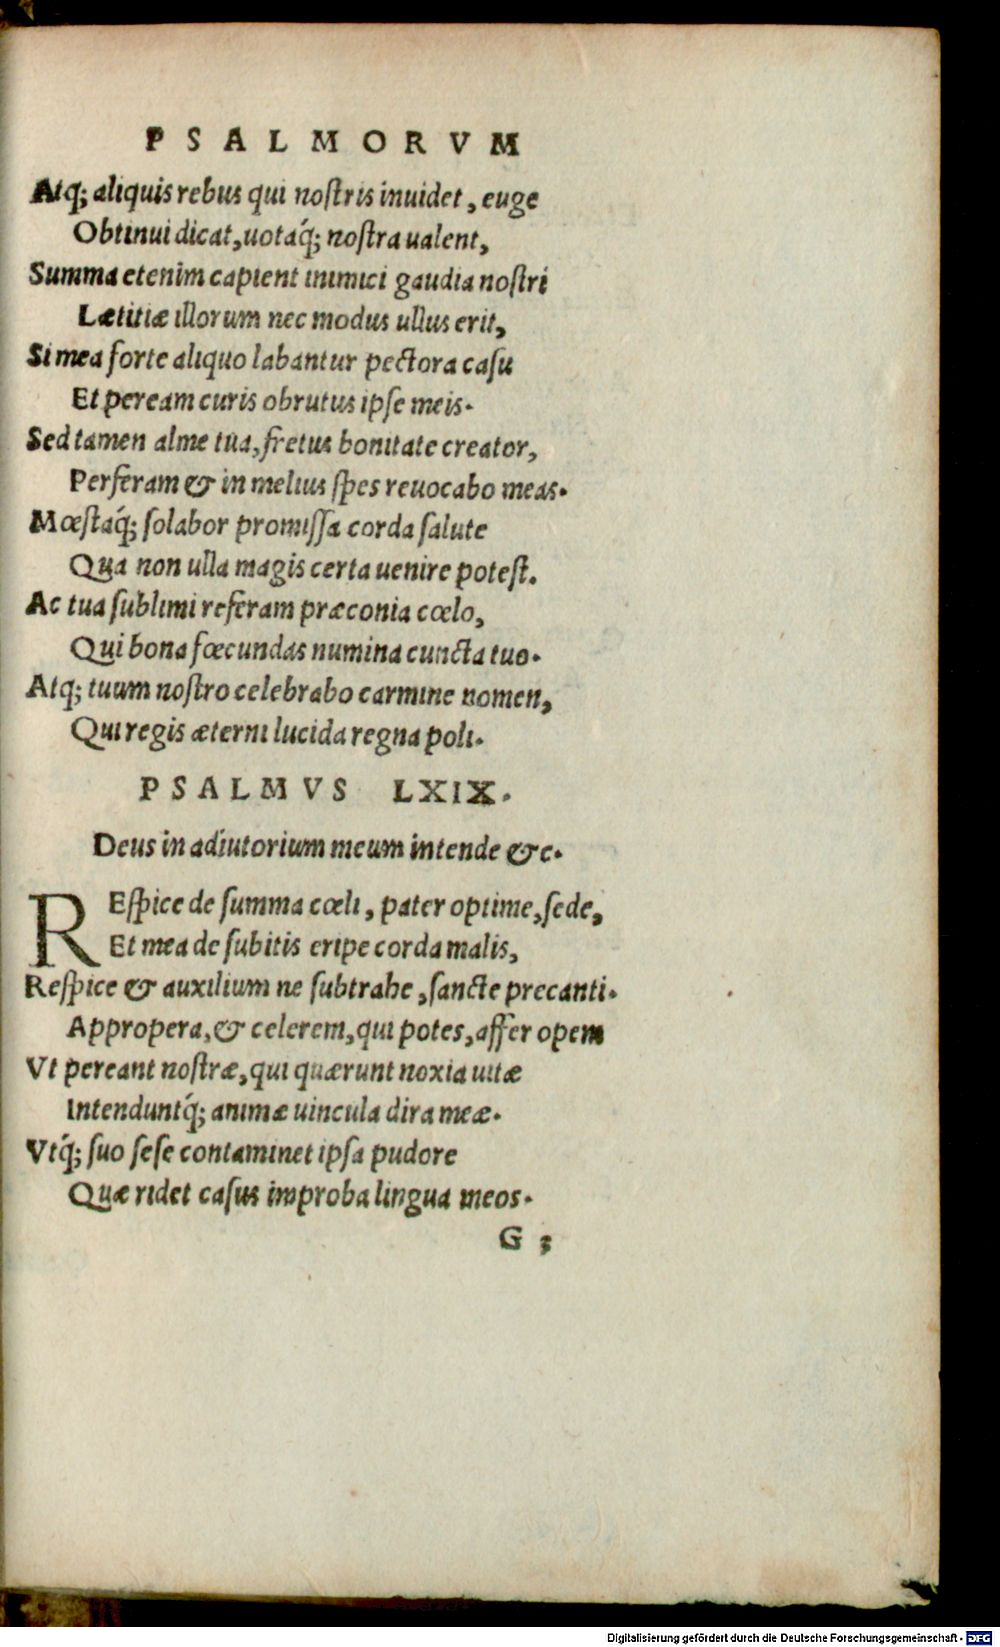 PSALMORVM
Atq; aliquis rebus qui nostris inuidet, euge
Obtinui dicat, uotaq́; nostra ualent,
Summa etenim capient inimici gaudia nostri
Lætitiæ illorum nec modus ullus erit,
Si mea forte aliquo labantur pectora casu
Et peream curis obrutus ipse meis.
Sed tamen alme tua, fretus bonitate creator,
Perferam & in melius spes reuocabo meas.
Mœstaq́; solabor promissa corda salute
Qua non ulla magis certa uenire potest.
Ac tua sublimi referam præconia cœlo,
Qui bona fœcundas numina cuncta tuo.
Atq; tuum nostro celebrabo carmine nomen,
Qui regis æterni lucida regna poli.
PSALMVS LXIX.
Deus in adiutorium meum intende &c.
REspice de summa cœli, pater optime, sede,
Et mea de subitis eripe corda malis,
Respice & auxilium ne subtrahe, sancte precanti.
Appropera, & celerem, qui potes, affer opem
Vt pereant nostræ, qui quærunt noxia uitæ
Intenduntq́; animæ uincula dira meæ.
Vtq́; suo sese contaminet ipsa pudore
Quæ ridet casus improba lingua meos.
G 3
Digitalisierung gefördert durch die Deutsche Forschungsgemeinschaft - DFG